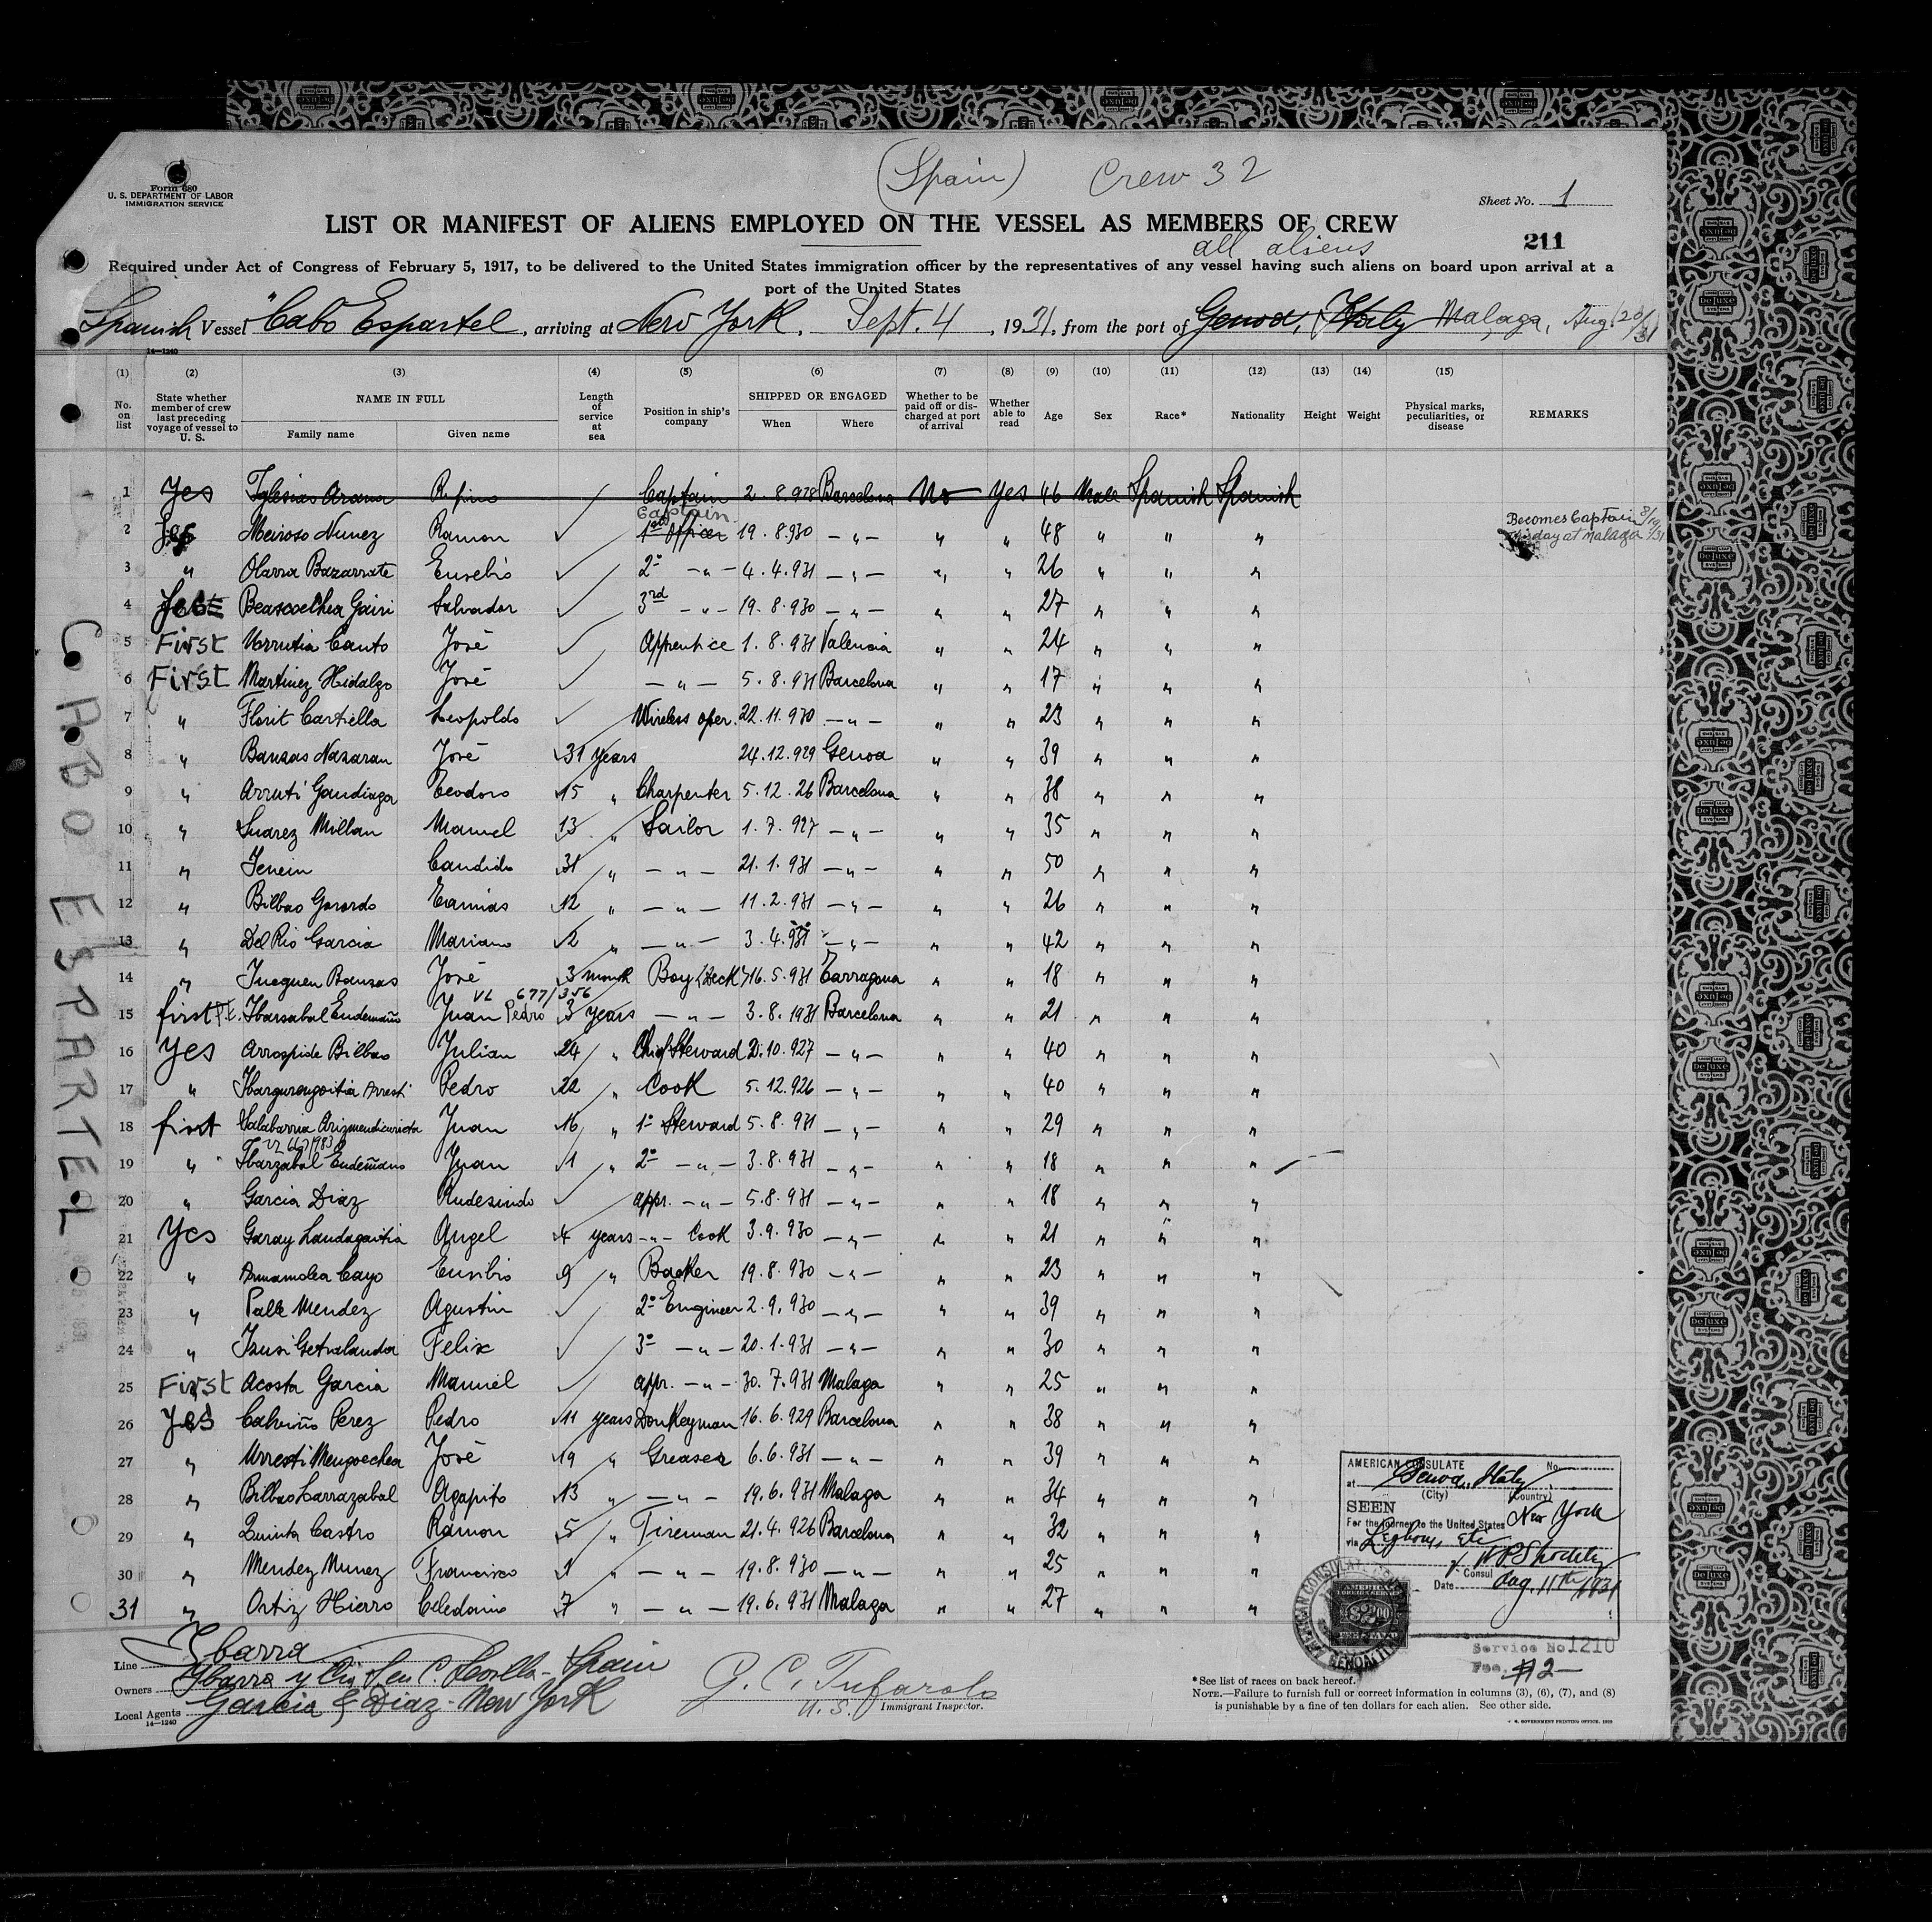 (Spain) Crew 32
Form 680
U. S. DEPARTMENT OF LABOR
IMMIGRATION SERVICE
Sheet No. 1
LIST OR MANIFEST OF ALIENS EMPLOYED ON THE VESSEL AS MEMBERS OF CREW
all aliens
211
Required under Act of Congress of February 5, 1917, to be delivered to the United States immigration officer by the representatives of any vessel having such aliens on board upon arrival at a
port of the United States
Spanish Vessel "Cabo Espartel, arriving at New York, Sept. 4, 1931, from the port of Genoa, Italy Malaga, Aug. 20/31
14—1240
(1) (2) (3) (4) (5) (6) (7) (8) (9) (10) (11) (12) (13) (14) (15)
No. on list State whether member of crew last preceding voyage of vessel to U. S. NAME IN FULL Family name Given name Length of service at sea Position in ship's company SHIPPED OR ENGAGED When Where Whether to be paid off or discharged at port of arrival Whether able to read Age Sex Race* Nationality Height Weight Physical marks, peculiarities, or disease REMARKS
1 Yes Iglesias Arana Captain 2. 8.928 Barcelona No Yes 46 Male Spanish Spanish
Captain
2 Yes Meiroso Nunez Ramon 1st Officer 19. 8.930 — " — " " 48 " " " Becomes Captain 8/19/31
day at Malaga
3 " Olarra Bazarrate Eusebio 2º — " — 4. 4. 931 — " — " " 26 " " "
4 Beascoechea Salvador 3rd — " — 19. 8. 930 — " — " " 27 " " "
5 First Urrutia Canto José Apprentice 1. 8. 931 Valencia " " 24 " " "
6 First Martinez Hidalgo José — " — 5. 8. 931 Barcelona " " 17 " " "
7 " Florit Cartiella Leopoldo Wireless oper. 22. 11. 930 — " — " " 23 " " "
8 " Bansas Nazaran José 31 years 24. 12. 929 Genoa " " 39 " " "
9 " Arruti Gandiaga Teodoro 15 " Charpenter 5. 12. 26 Barcelona " " 38 " " "
10 " Suarez Millan Manuel 13 " Sailor 1. 7. 927 — " — " " 35 " " "
11 " Candido 31 " — " — 21. 1. 931 — " — " " 50 " " "
12 " Bilbao Gorordo 12 " — " — 11. 2. 931 — " — " " 26 " " "
13 " Del Rio Garcia Mariano 2 " — " — 3. 4. 931 — " — " " 42 " " "
14 " Bansas José 3 month Boy (Deck) 16. 5. 931 Tarragona " " 18 " " "
VL 677/356
15 first P.E. Ibarzabal Endemaño Juan Pedro 3 years — " — 3. 8. 1931 Barcelona " " 21 " " "
16 Yes Arrospide Bilbao Julian 24 " Chief Steward 2. 10. 927 — " — " " 40 " " "
17 " Ibargurengoitia Arresti Pedro 22 " Cook 5. 12. 926 — " — " " 40 " " "
18 first Juan 16 " 1º Steward 5. 8. 931 — " — " " 29 " " "
19 " Ibarzabal Endemaño Juan 1 " 2º — " — 3. 8. 931 — " — " " 18 " " "
20 " Garcia Diaz Rudesindo appr. — " — 5. 8. 931 — " — " " 18 " " "
21 Yes Garay Landagaitia Angel 4 years — " — Cook 3. 9. 930 — " — " " 21 " " "
22 " Cayo Eusibio 9 " Backer 19. 8. 930 — " — " " 23 " " "
23 " Mendez Agustin 2º Engineer 2. 9. 930 — " — " " 39 " " "
24 " Felix 3º — " — 20. 1. 931 — " — " " 30 " " "
25 First Acosta Garcia Manuel appr. — " — 30. 7. 931 Malaga " " 25 " " "
26 Yes Calviño Perez Pedro 11 years Donkeyman 16. 6. 929 Barcelona " " 38 " " "
27 " Urresti Mengoechea José 19 " Greaser 6. 6. 931 — " — " " 39 " " "
28 " Bilbao Larrazabal Agapito 13 " — " — 19. 6. 931 Malaga " " 34 " " "
29 " Quinta Castro Ramon 5 " Fireman 21. 4. 926 Barcelona " " 32 " " "
30 " Mendez Munez Francisco 1 " — " — 19. 8. 930 — " — " " 25 " " "
31 " Ortiz Hierro Celedonio 7 " — " — 19. 6. 931 Malaga " " 27 " " "
CABO ESPARTEL
AMERICAN CONSULATE No.
at Genoa, Italy
(City) (Country)
SEEN
For the journey to the United States New York
via Leghorn, etc
Consul
Date Aug. 11th 1931
Service No. 1210
Fee #2—
Line Ybarra
Owners Ybarra y Cia, S. en C. Sevilla - Spain
Local Agents Garcia & Diaz - New York
14—1240
G. C. Tufarolo
U. S. Immigrant Inspector.
*See list of races on back hereof.
NOTE.—Failure to furnish full or correct information in columns (3), (6), (7), and (8)
is punishable by a fine of ten dollars for each alien. See other side.